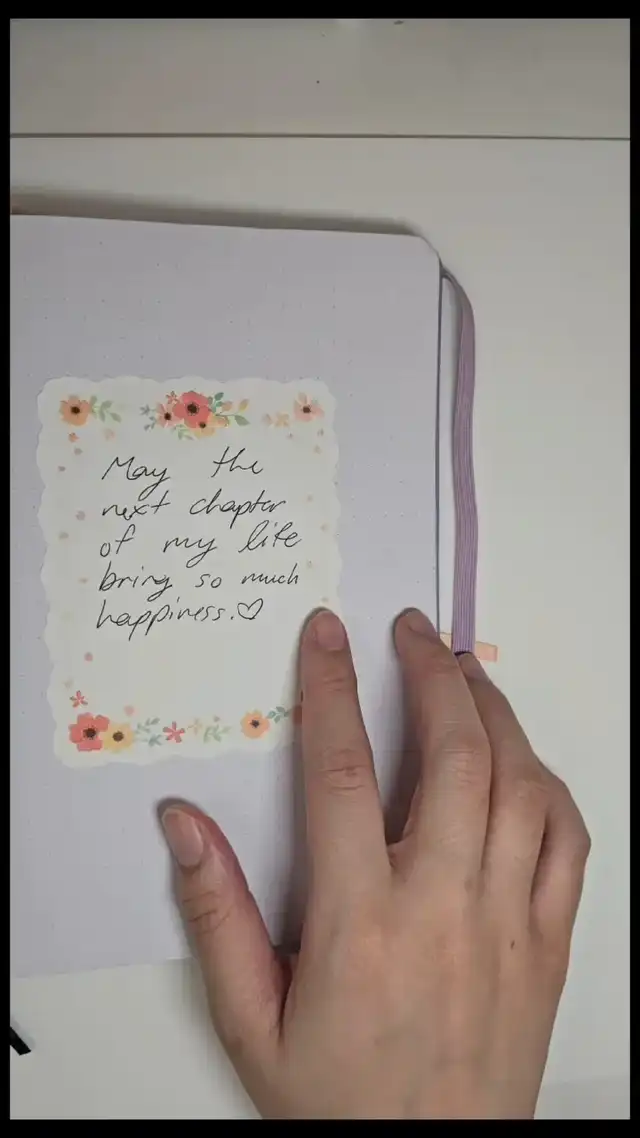 May the
next chapter
of my life
bring so much
happiness.♡